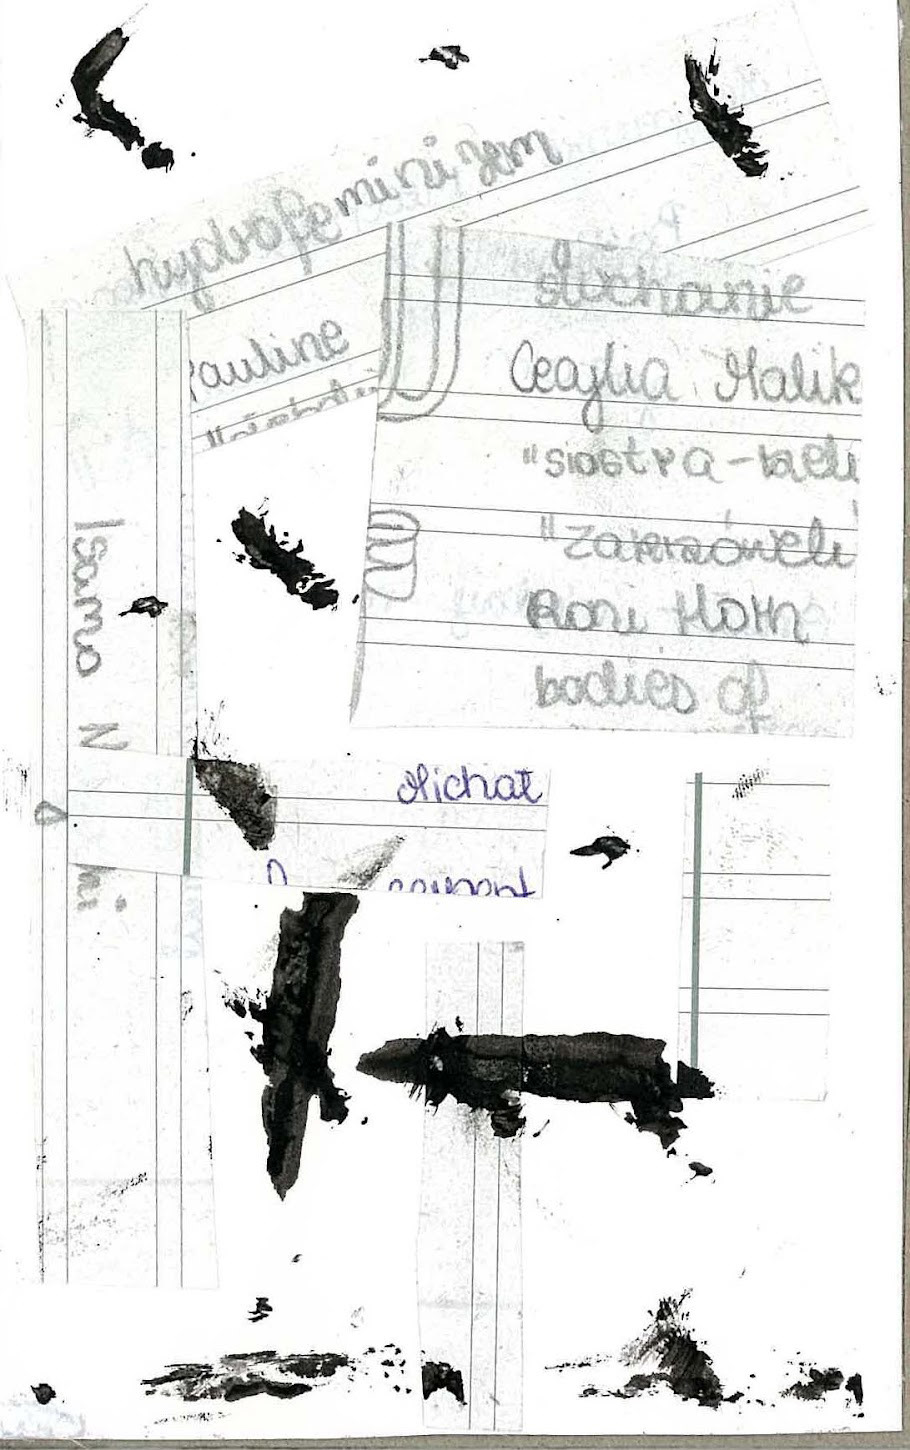 hydrofeminizm
Pauline
słuchanie
Cecylia Malik
"siostra-rzeki
"zakrzówek
Roni Horn
bodies of
Isamo N
Michał